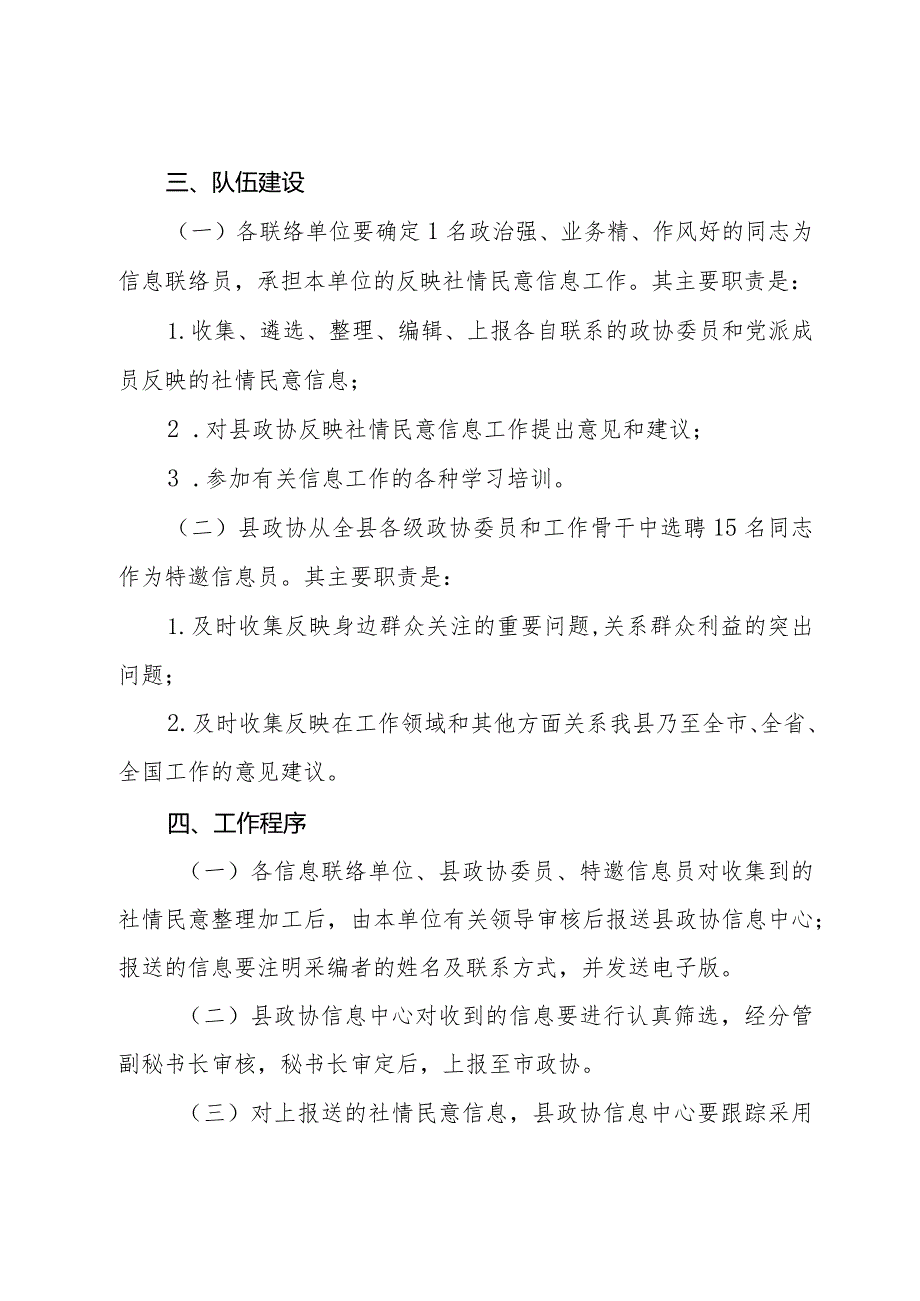 三、队伍建设
（一）各联络单位要确定1名政治强、业务精、作风好的同志为
信息联络员，承担本单位的反映社情民意信息工作。其主要职责是：
1.收集、遴选、整理、编辑、上报各自联系的政协委员和党派成
员反映的社情民意信息；
2.对县政协反映社情民意信息工作提出意见和建议；
3.参加有关信息工作的各种学习培训。
（二）县政协从全县各级政协委员和工作骨干中选聘15名同志
作为特邀信息员。其主要职责是：
1.及时收集反映身边群众关注的重要问题,关系群众利益的突出
问题；
2.及时收集反映在工作领域和其他方面关系我县乃至全市、全省、
全国工作的意见建议。
四、工作程序
（一）各信息联络单位、县政协委员、特邀信息员对收集到的
社情民意整理加工后，由本单位有关领导审核后报送县政协信息中心；
报送的信息要注明采编者的姓名及联系方式，并发送电子版。
（二）县政协信息中心对收到的信息要进行认真筛选，经分管
副秘书长审核，秘书长审定后，上报至市政协。
（三）对上报送的社情民意信息，县政协信息中心要跟踪采用